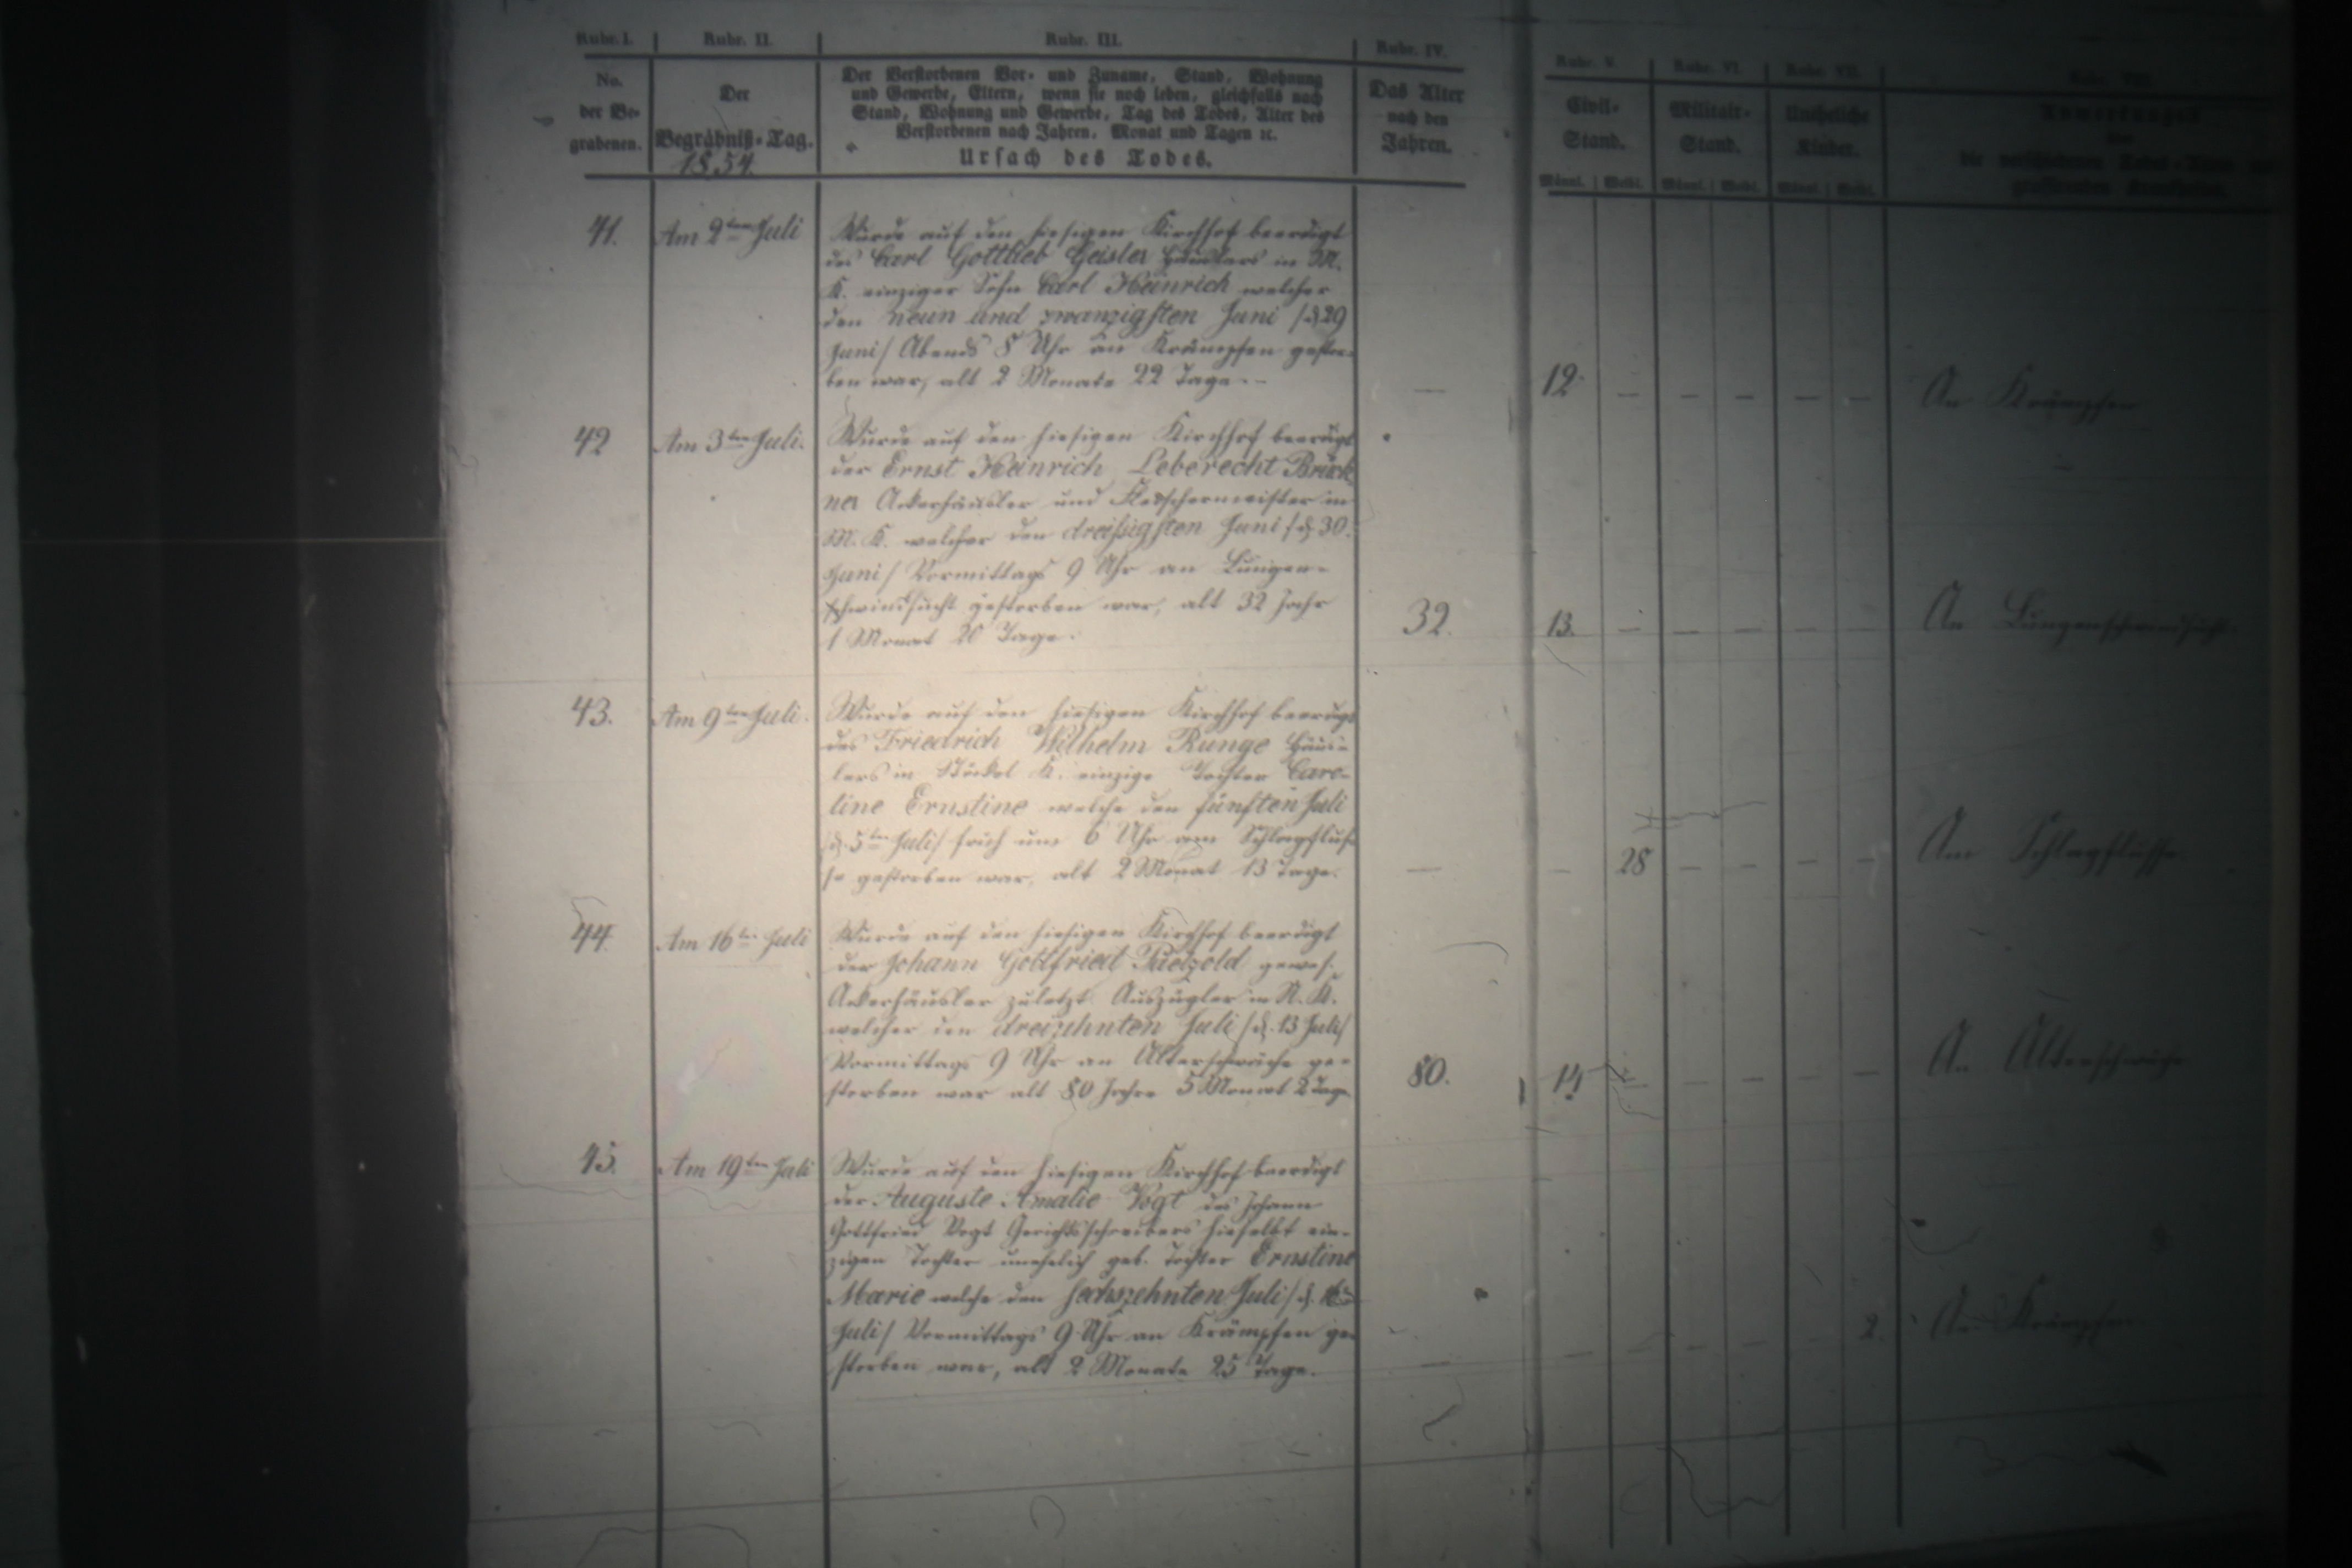 Rubr. I. Rubr. II. Rubr. III. Rubr. IV. Rubr. V. Rubr. VI. Rubr. VII. Rubr. VIII.
No.
der Be-
grabenen.
Der
Begräbniß-Tag.
1854.
Der Verstorbenen Vor- und Zuname, Stand, Wohnung
und Gewerbe, Eltern, wenn sie noch leben, gleichfalls nach
Stand, Wohnung und Gewerbe, Tag des Todes, Alter des
Verstorbenen nach Jahren, Monat und Tagen ꝛc.
Ursach des Todes.
Das Alter
nach den
Jahren.
Civil-
Stand.
Militair-
Stand.
Uneheliche
Kinder.
Anmerkungen
die verschiedenen Todes-Arten
grassirenden Krankheiten.
Männl. Weibl. Männl. Weibl. Männl. Weibl.
41.
Am 2ten Juli
Wurde auf den hiesigen Kirchhof beerdigt
des Carl Gottlieb Geisler Häuslers in M.
K. einziger Sohn Carl Heinrich welcher
den neun und zwanzigsten Juni /d. 29
Juni/ Abends 8 Uhr an Krämpfen gestor-
ben war, alt 2 Monate 22 Tage.
— 12. — — — — — An Krämpfen
42
Am 3ten Juli.
Wurde auf den hiesigen Kirchhof beerdigt
der Ernst Heinrich Leberecht Brück
ner Ackerhäusler und Fleischermeister in
M. K. welcher den dreißigsten Juni /d. 30.
Juni/ Vormittags 9 Uhr an Lungen-
schwindsucht gestorben war, alt 32 Jahr
1 Monat 20 Tage.
32. 13. — — — — — An Lungenschwindsucht.
43.
Am 9ten Juli.
Wurde auf den hiesigen Kirchhof beerdigt
des Friedrich Wilhelm Runge Häus-
lers in Stöckel K. einzige Tochter Caro-
line Ernstine welche den fünften Juli
/d. 5ten Juli/ früh um 6 Uhr am Schlagflus-
se gestorben war, alt 2 Monat 13 Tage.
— — 28 — — — — Am Schlagflusse
44.
Am 16ten Juli
Wurde auf den hiesigen Kirchhof beerdigt
der Johann Gottfried Paetzold gewes.
Ackerhäusler zuletzt Auszügler in N. K.
welcher den dreizehnten Juli /d. 13 Juli/
Vormittags 9 Uhr an Altersschwäche ge-
storben war alt 80 Jahre 5 Monat 2 Tage
80. 14 — — — — — An Altersschwäche
45.
Am 19ten Juli
Wurde auf den hiesigen Kirchhof beerdigt
der Auguste Amalie Vogt des Johann
Gottfried Vogt Gerichtsschreibers hieselbst ein-
zigen Tochter unehelich geb. Tochter Ernstine
Marie welche den sechszehnten Juli /d. 16ten
Juli/ Vormittags 9 Uhr an Krämpfen ge
storben war, alt 2 Monate 25 Tage.
— — — — — 2. An Krämpfen